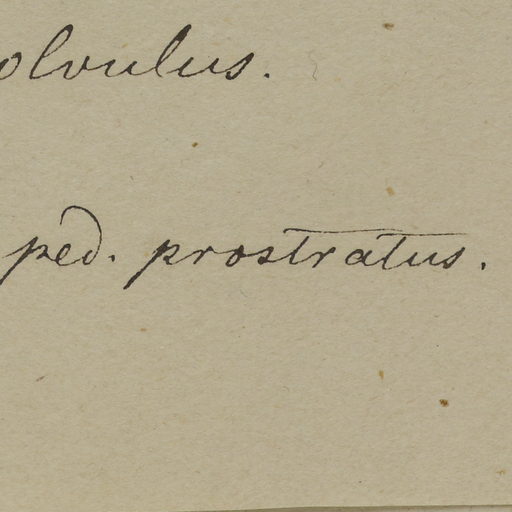 olvulus.
ped. prostratus.